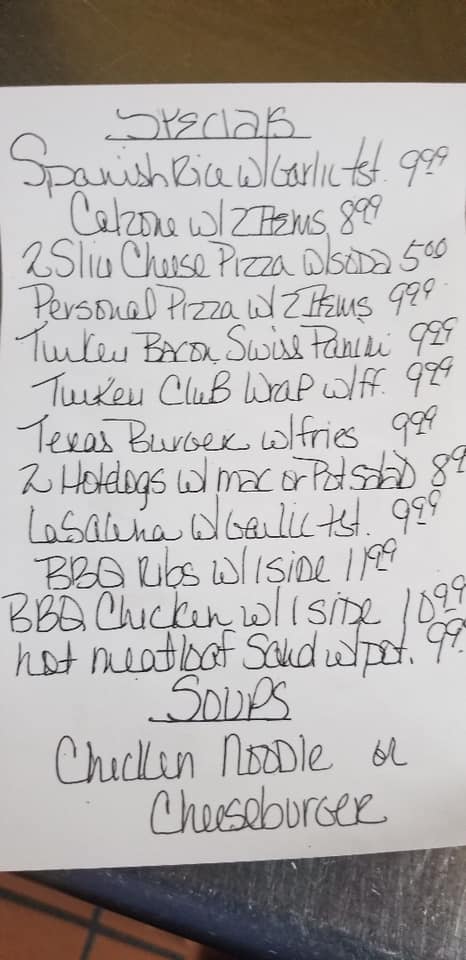 Specials
Spanish Rice w/Garlic tst. 9.99
Calzone w/ 2 Items 8.99
2 Slice Cheese Pizza w/soda 5.00
Personal Pizza w/ 2 Items 9.99
Turkey Bacon Swiss Panini 9.99
Turkey Club Wrap w/ff. 9.99
Texas Burger w/fries 9.99
2 Hotdogs w/ mac or Pot Salad 8.9
Lasagna w/Garlic tst. 9.99
BBQ Ribs w/ 1 side 11.99
BBQ Chicken w/ 1 side 10.99
hot meatloaf Sand w/pot. 9.9
Soups
Chicken Noodle or
Cheeseburger